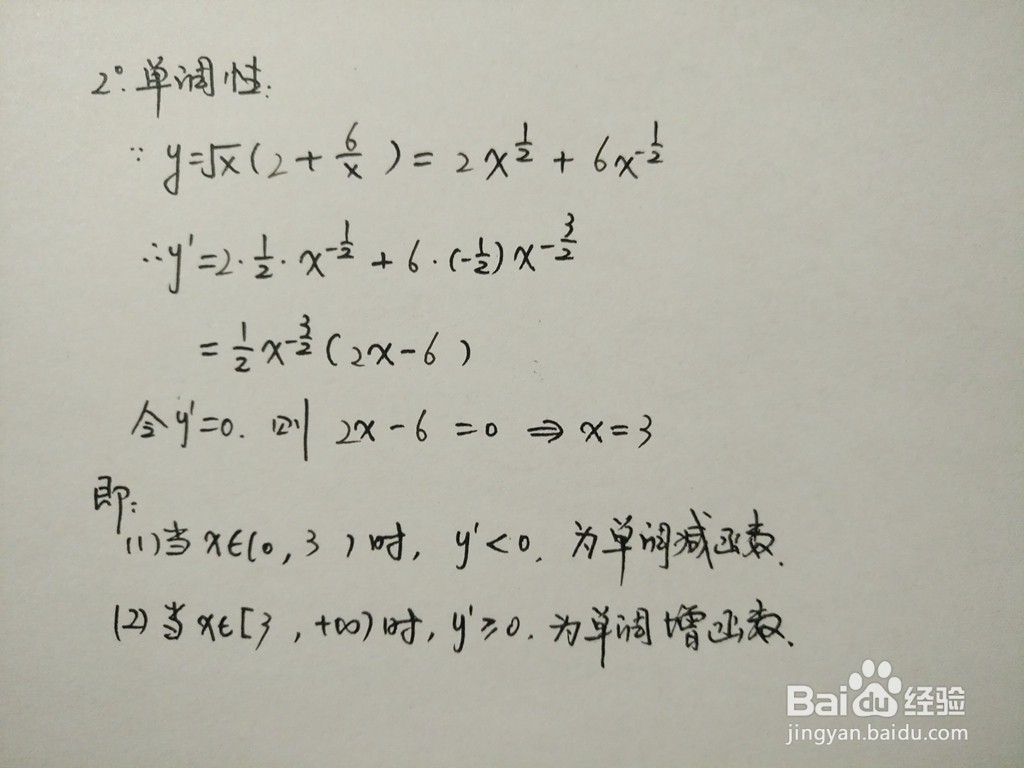 2°. 单调性:
∵ y=√x(2+6/x)=2x^{1/2}+6x^{-1/2}
∴y'=2·1/2·x^{-1/2}+6·(-1/2)x^{-3/2}
=1/2x^{-3/2}(2x-6)
令y'=0. 则 2x-6=0 ⇒ x=3
即:
(1)当x∈(0,3)时, y'<0. 为单调减函数.
(2)当x∈[3,+∞)时, y'≥0. 为单调增函数.
Bai du 经验
jingyan.baidu.com